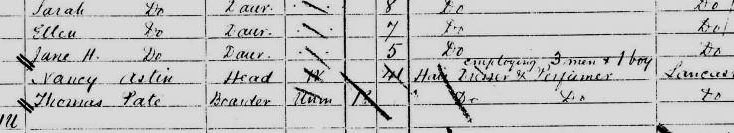 Sarah Do Daur. 8 Do Do
Ellen Do Daur. 7 Do Do
Jane H. Do Daur. 5 Do Do
employing 3 men & 1 boy
Nancy Aslin Head W 41 Hair & Perfumer Lancas
Thomas Pate Boarder Unm Do Do Do